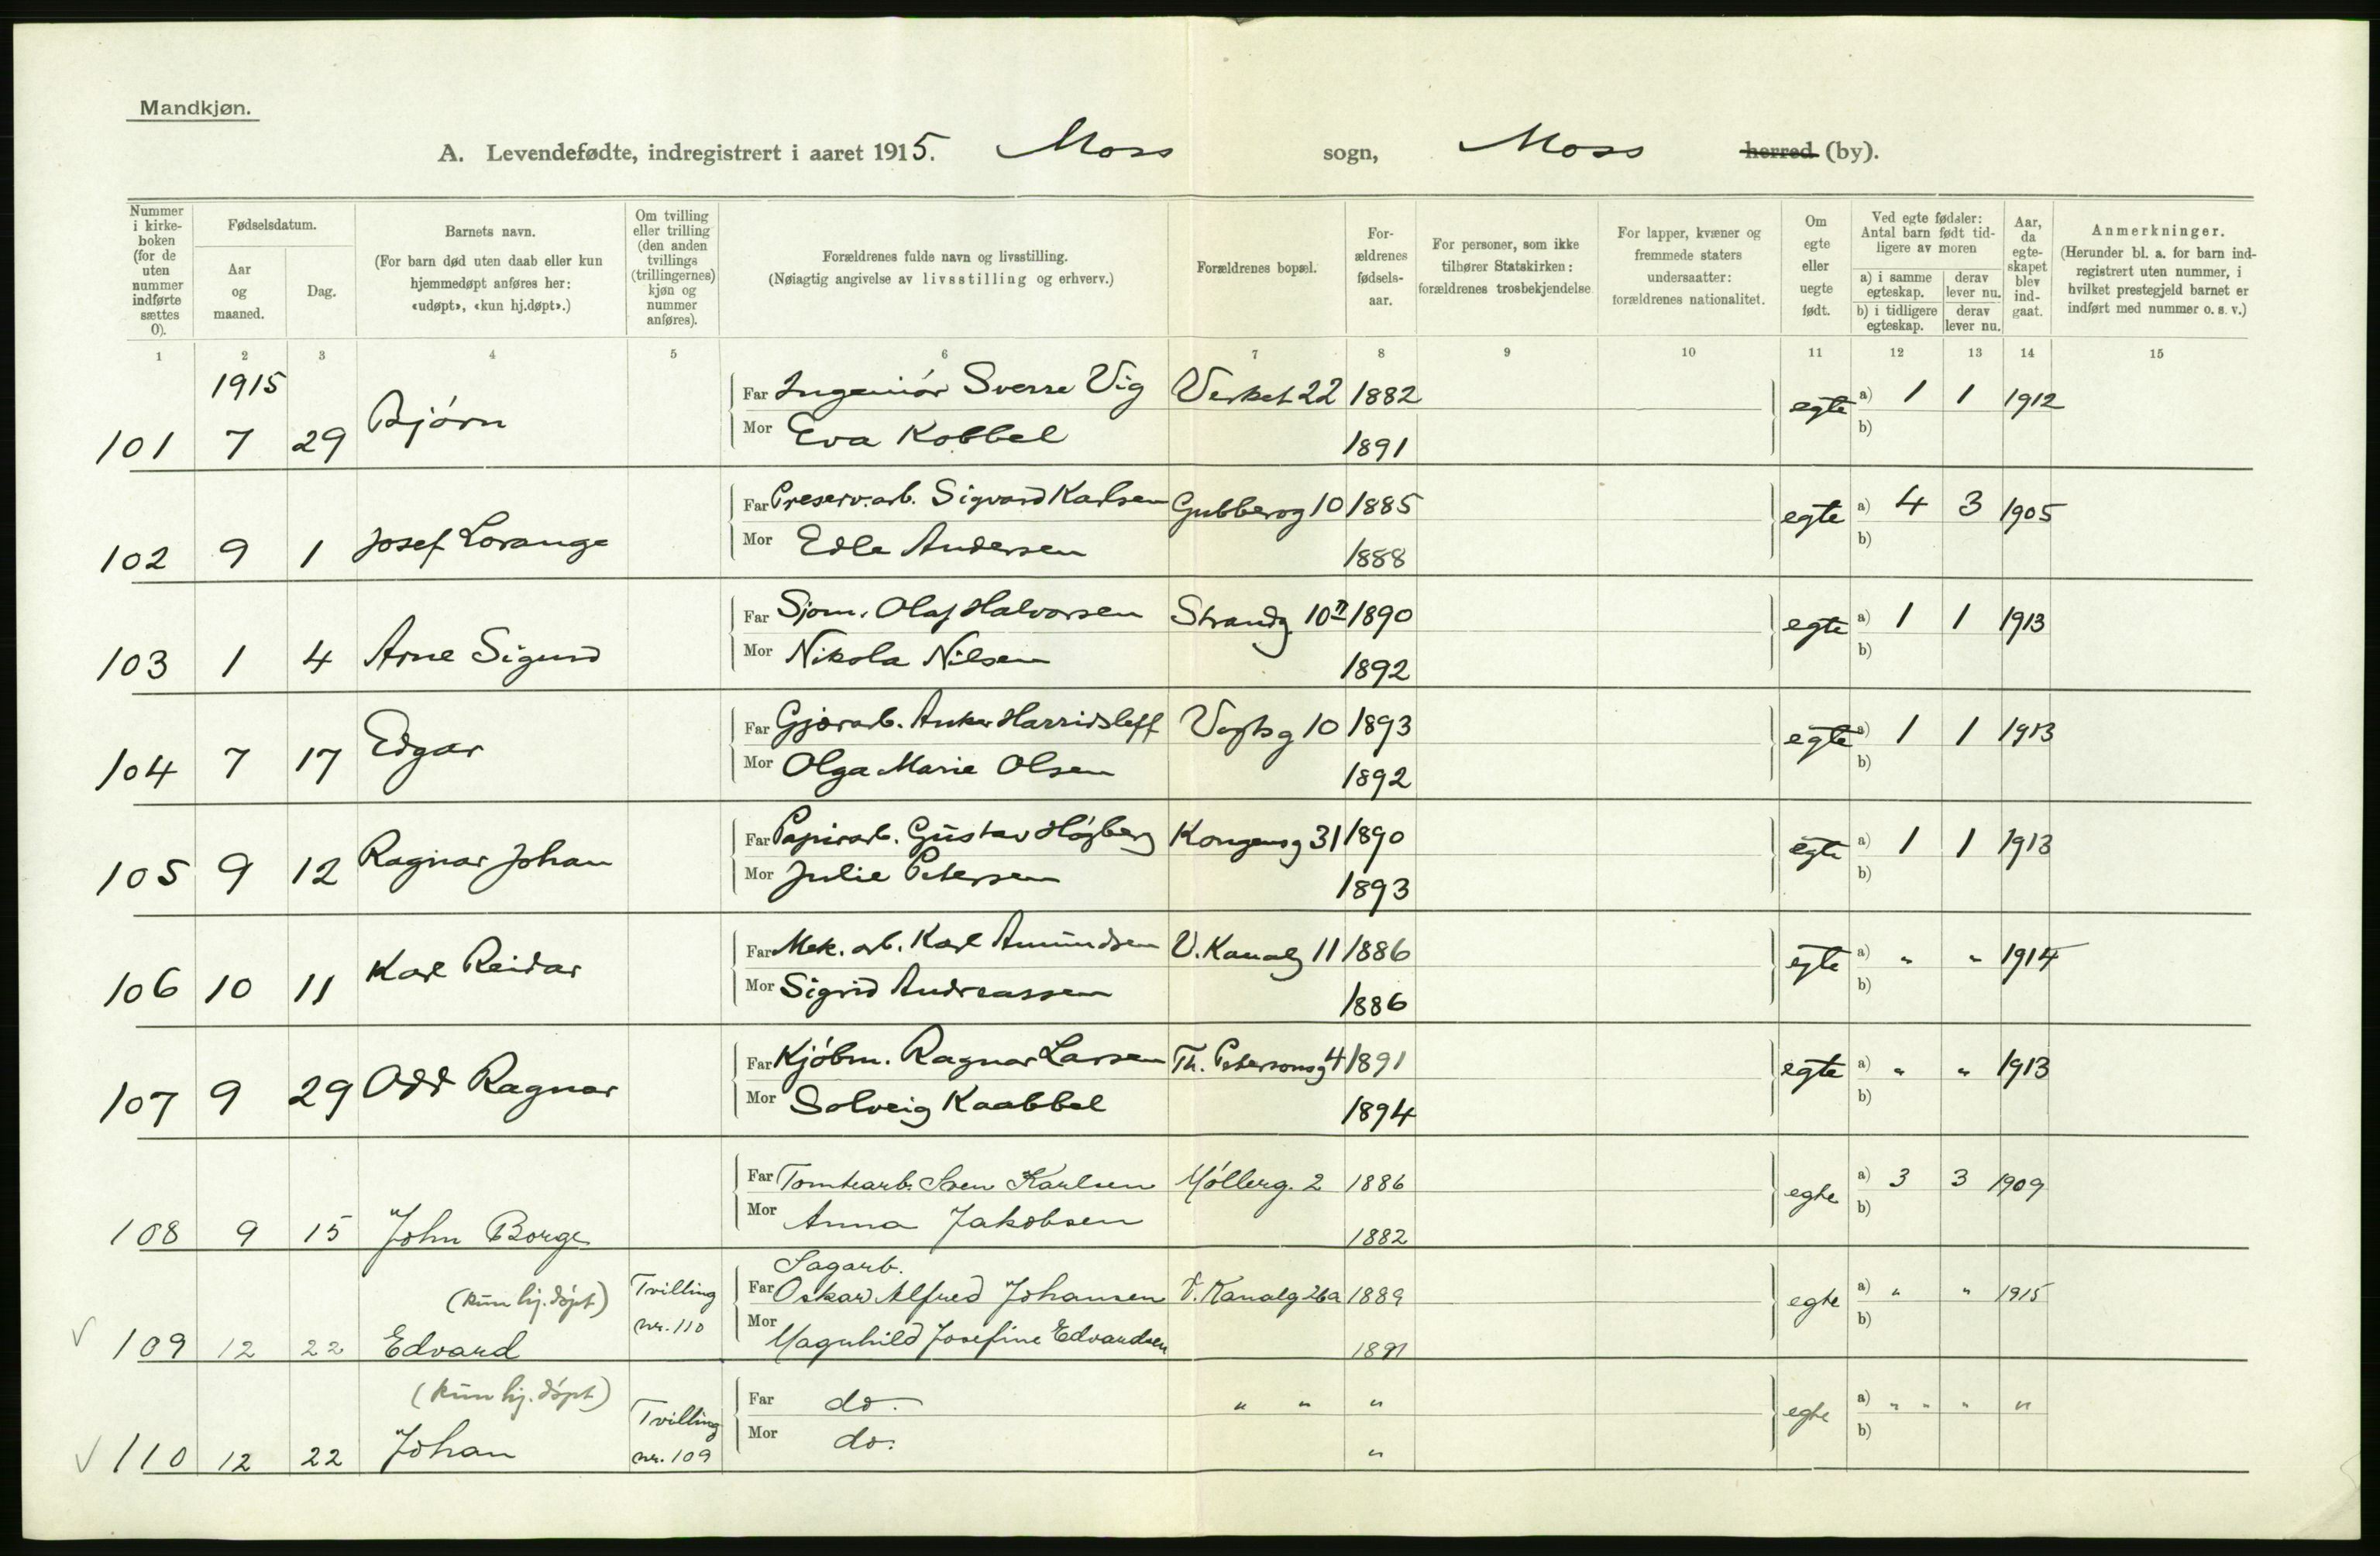 Mandkjøn.
A. Levendefødte, indregistrert i aaret 1915. Moss sogn, Moss herred (by).
Nummer i kirkeboken (for de uten nummer indførte sættes 0).
Fødselsdatum.
Aar og maaned.
Dag.
Barnets navn.
(For barn død uten daab eller kun hjemmedøpt anføres her: «udøpt», «kun hj.døpt».)
Om tvilling eller trilling (den anden tvillings (trillingernes) kjøn og nummer anføres).
Forældrenes fulde navn og livsstilling.
(Nøiagtig angivelse av livsstilling og erhverv.)
Forældrenes bopæl.
For-ældrenes fødsels-aar.
For personer, som ikke tilhører Statskirken: forældrenes trosbekjendelse
For lapper, kvæner og fremmede staters undersaatter: forældrenes nationalitet.
Om egte eller uegte født.
Ved egte fødsler: Antal barn født tid-ligere av moren
a) i samme egteskap. derav lever nu.
b) i tidligere egteskap. derav lever nu.
Aar, da egte-skapet blev ind-gaat.
Anmerkninger.
(Herunder bl. a. for barn ind-registrert uten nummer, i hvilket prestegjeld barnet er indført med nummer o. s. v.)
1 2 3 4 5 6 7 8 9 10 11 12 13 14 15
1915
101 7 29 Bjórn Far Ingeniór Sverre Vig Verket 22 1882 egte a) 1 1 1912
Mor Eva Kobbel 1891 b)
102 9 1 Josef Lorange Far Preserv.arb. Sigvard Karlsen Gubberog 10 1885 egte a) 4 3 1905
Mor Edle Andersen 1888 b)
103 1 4 Arne Sigurd Far Sjom. Olaf Halvorsen Strandg 10 II 1890 egte a) 1 1 1913
Mor Nikola Nilsen 1892 b)
104 7 17 Edgar Far Gjærarb. Anker Harridsleff Vogtsg 10 1893 egte a) 1 1 1913
Mor Olga Marie Olsen 1892 b)
105 9 12 Ragnar Johan Far Papirarb. Gustav Högberg Kongensg 31 1890 egte a) 1 1 1913
Mor Julie Petersen 1893 b)
106 10 11 Karl Reidar Far Mek. arb. Karl Amundsen V. Kanalg 11 1886 egte a) " " 1914
Mor Sigrid Andreassen 1886 b)
107 9 29 Odd Ragnar Far Kjóbm. Ragnar Larsen Th. Petersonsg 4 1891 egte a) " " 1913
Mor Solveig Kaabbel 1894 b)
108 9 15 John Borge Far Tomtearb. Sven Karlsen Móllerg. 2 1886 egte a) 3 3 1909
Mor Anna Jakobsen 1882 b)
109 12 22 (kun hj. døpt) Edvard Tvilling nr. 110 Sagarb.
Far Oskar Alfred Johansen V. Kanalg 26a 1889 egte a) " " 1915
Mor Magnhild Josefine Edvardsen 1891 b)
110 12 22 (kun hj. døpt) Johan Tvilling nr. 109 Far do. " " " egte a) " " " "
Mor do. " b)